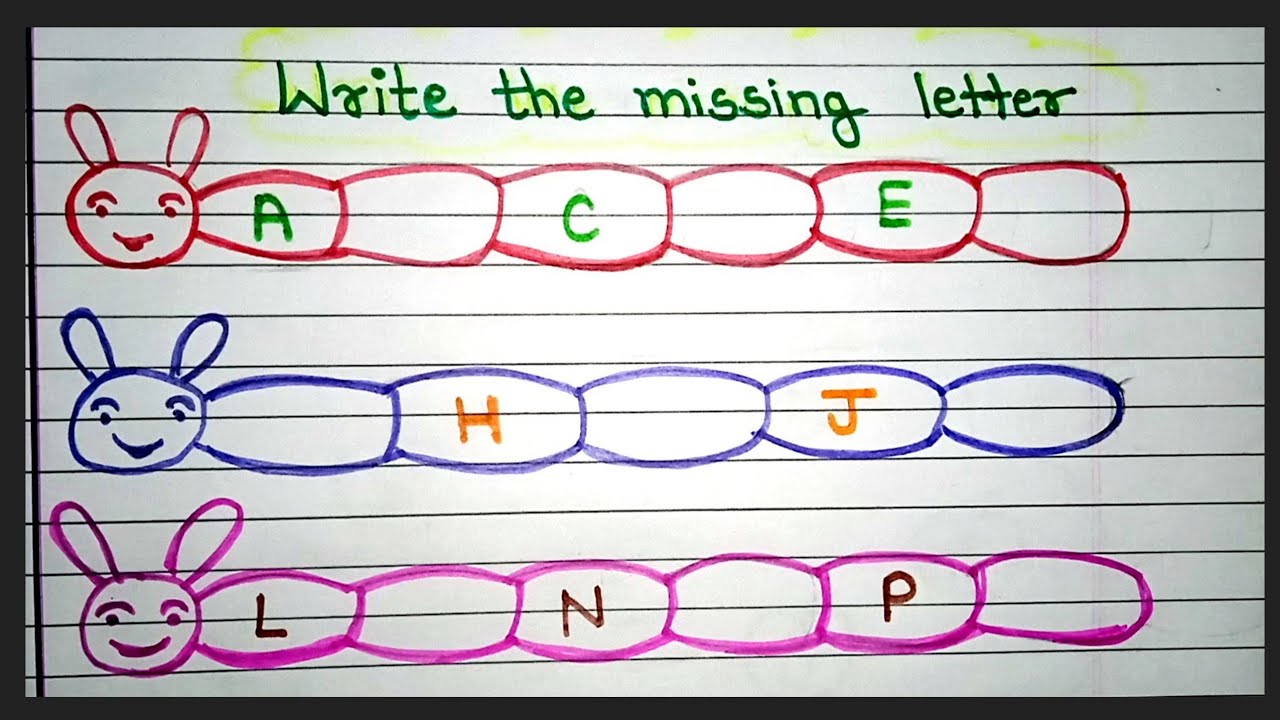 Write the missing letter
A C E
H J
L N P